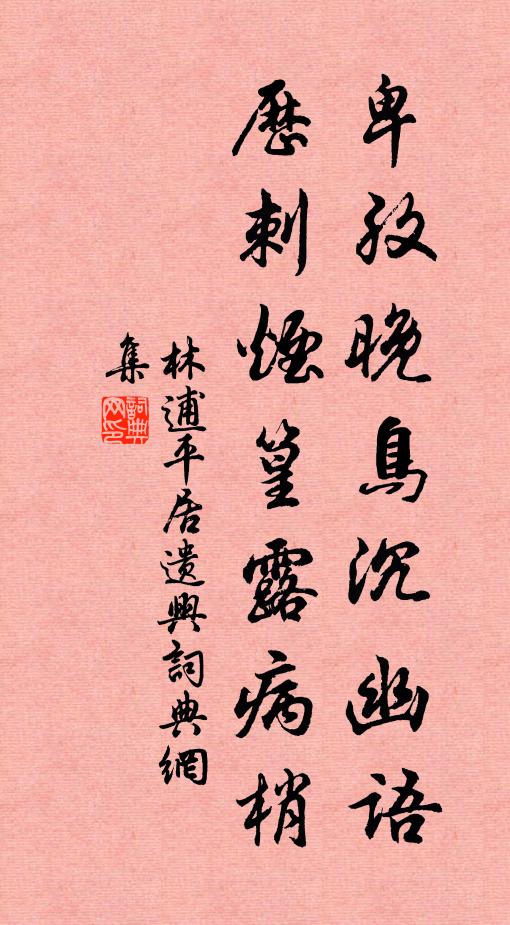 卑孜晚鳥沉幽語
歷刺煙篁露病梢
林逋平居遺興詞典網
集
詞典
网印